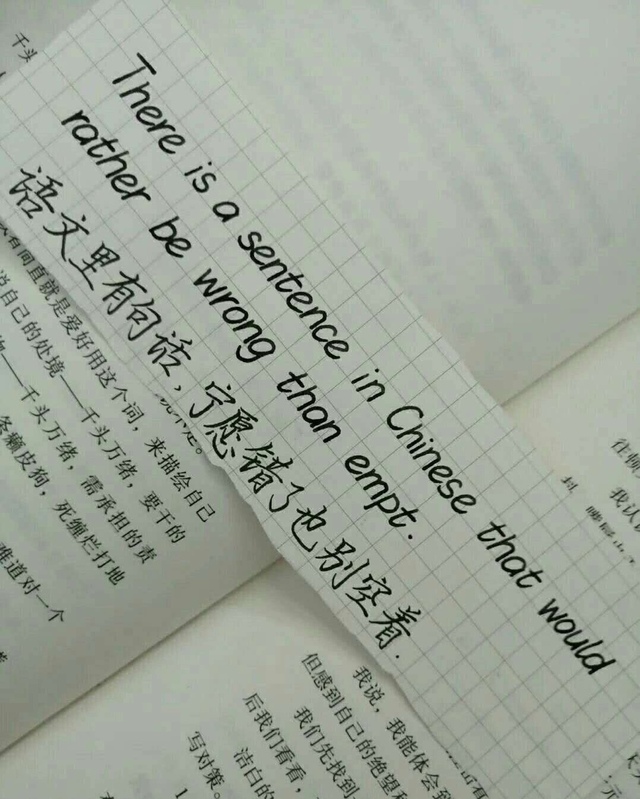 千头
There is a sentence in Chinese that would
rather be wrong than empt.
语文里有句话，宁愿错了也别空着.
直就是爱好用这个词，来描绘自己
说自己的处境——千头万绪，要干的
——千头万绪，需承担的责
条癞皮狗，死缠烂打地
难道对一个
往
我认
我说，我能体会到
但感到自己的绝望
我们先找到
后我们看看，
洁白的
写对策。